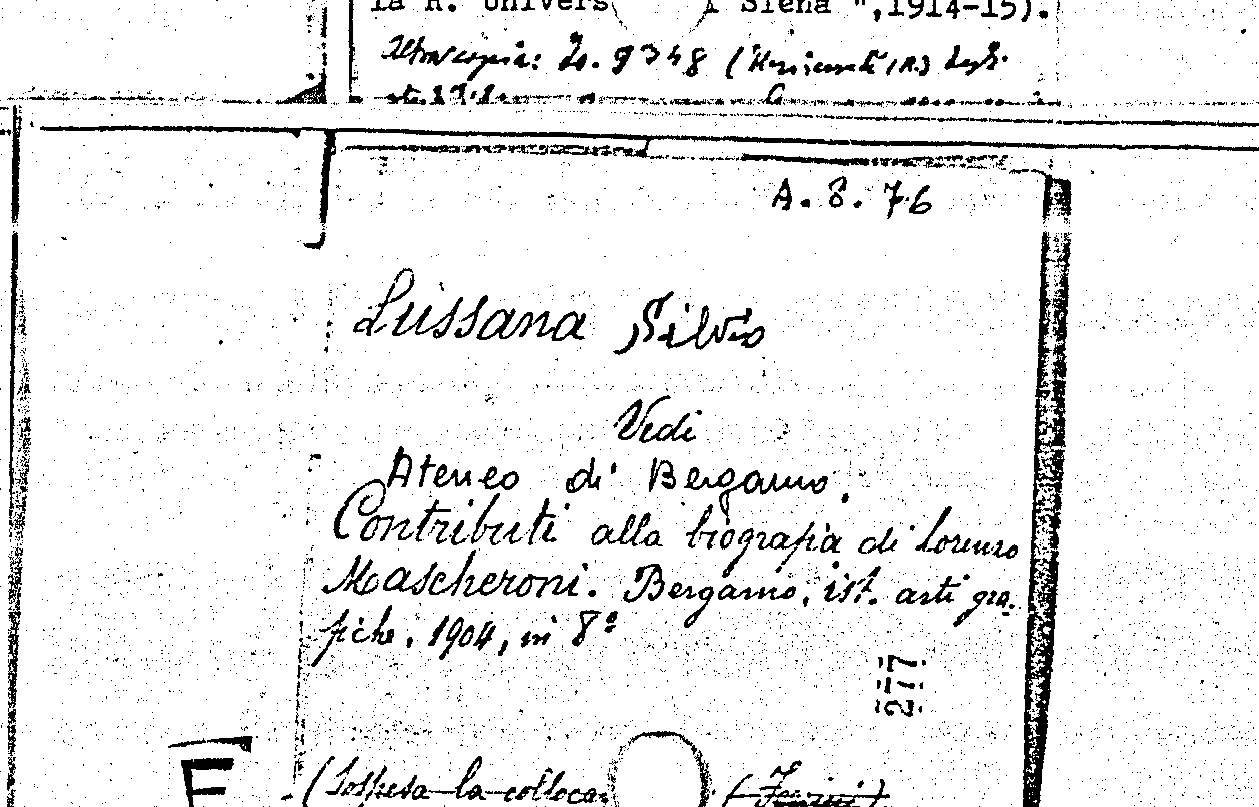 la R. Univers i Siena ",1914-15).
Altra copia: Io. 9348
A. 8. 76
Lussana Silvio
Vedi
Ateneo di Bergamo.
Contributi alla biografia di Lorenzo
Mascheroni. Bergamo, ist. arti gra-
fiche, 1904, in 8º
277
E
(Sospesa la colloca